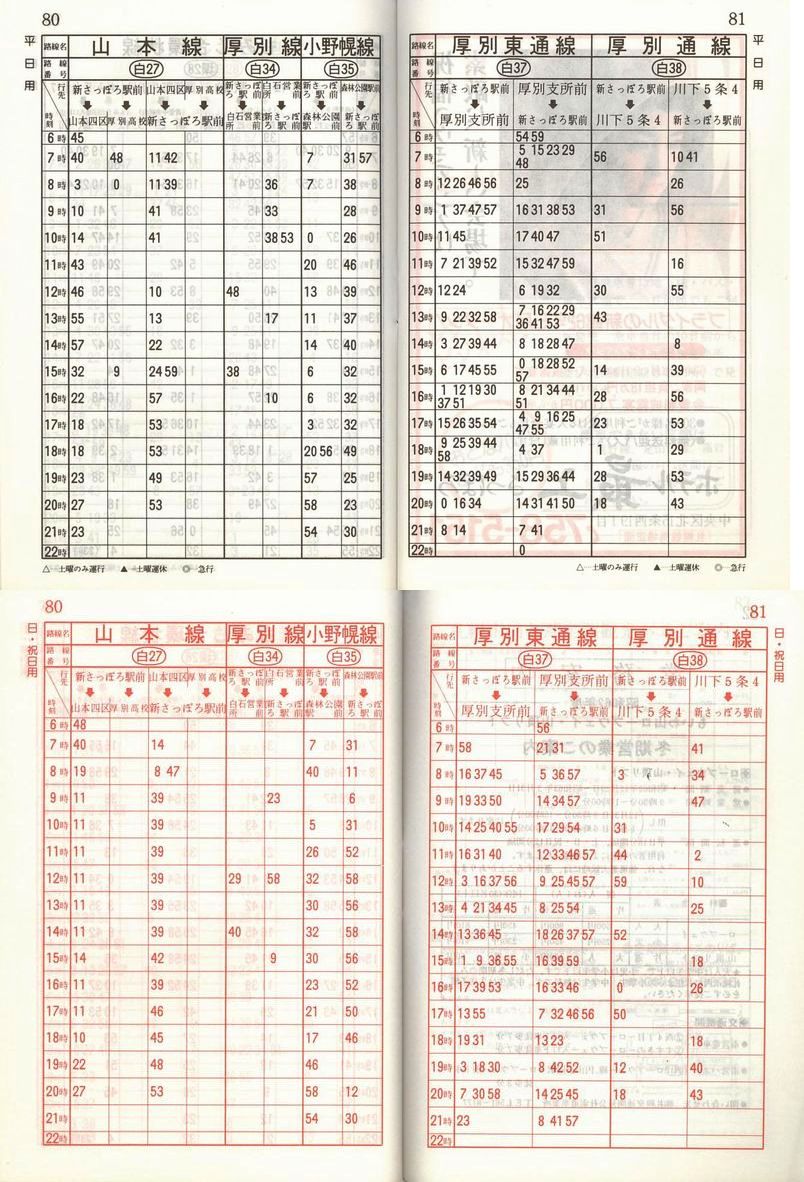 80
平日用
路線名 山本線 厚別線 小野幌線
路線番号 白27 白34 白35
行先 新さっぽろ駅前 山本四区 厚別高校 新さっぽろ駅前 白石営業所前 新さっぽろ駅前 森林公園駅前
時刻 山本四区 厚別高校 新さっぽろ駅前 白石営業所前 新さっぽろ駅前 森林公園駅前 新さっぽろ駅前
6時 45
7時 40 48 11 42 7 31 57
8時 3 0 11 39 36 7 38
9時 10 41 33 28
10時 14 41 38 53 0 26
11時 43 20 46
12時 46 10 48 13 39
13時 55 13 17 11 37
14時 57 22 14 40
15時 32 9 24 59 38 6 32
16時 22 57 10 6 32
17時 18 53 3 32
18時 18 53 20 56 49
19時 23 49 57 25
20時 27 53 58 23
21時 23 54 30
22時
△…土曜のみ運行 ▲…土曜運休 ◎…急行
81
平日用
路線名 厚別東通線 厚別通線
路線番号 白37 白38
行先 新さっぽろ駅前 厚別支所前 新さっぽろ駅前 川下5条4
時刻 厚別支所前 新さっぽろ駅前 川下5条4 新さっぽろ駅前
6時 54 59
7時 5 15 23 29 48 56 10 41
8時 12 26 46 56 25 26
9時 1 37 47 57 16 31 38 53 31 56
10時 11 45 17 40 47 51
11時 7 21 39 52 15 32 47 59 16
12時 12 24 6 19 32 30 55
13時 9 22 32 58 7 16 22 29 36 41 53 43
14時 3 27 39 44 8 18 28 47 8
15時 6 17 45 55 0 18 28 52 57 14 39
16時 1 12 19 30 37 51 8 21 34 44 51 28 56
17時 15 26 35 54 4 9 16 25 47 55 23 53
18時 9 25 39 44 58 4 37 1 29
19時 14 32 39 49 15 29 36 44 28 53
20時 0 16 34 14 31 41 50 18 43
21時 8 14 7 41
22時 0
△…土曜のみ運行 ▲…土曜運休 ◎…急行
80
日・祝日用
路線名 山本線 厚別線 小野幌線
路線番号 白27 白34 白35
行先 新さっぽろ駅前 山本四区 厚別高校 新さっぽろ駅前 白石営業所前 新さっぽろ駅前 森林公園駅前
時刻 山本四区 厚別高校 新さっぽろ駅前 白石営業所前 新さっぽろ駅前 森林公園駅前 新さっぽろ駅前
6時 48
7時 40 14 7 31
8時 19 8 47 40 11
9時 11 39 23 6
10時 11 39 5 31
11時 11 39 26 52
12時 11 39 29 58 32 58
13時 11 39 30 56
14時 11 39 40 32 58
15時 14 42 9 30 56
16時 11 39 23 52
17時 11 46 21 50
18時 10 45 17 46
19時 22 48 46
20時 27 53 58 12
21時 54 30
22時
81
日・祝日用
路線名 厚別東通線 厚別通線
路線番号 白37 白38
行先 新さっぽろ駅前 厚別支所前 新さっぽろ駅前 川下5条4
時刻 厚別支所前 新さっぽろ駅前 川下5条4 新さっぽろ駅前
6時 56
7時 58 21 31 41
8時 16 37 45 5 36 57 3 34
9時 19 33 50 14 34 57 47
10時 14 25 40 55 17 29 54 31
11時 16 31 40 12 33 46 57 44 2
12時 3 16 37 56 9 25 45 57 59 10
13時 4 21 34 45 8 25 54 25
14時 13 36 45 18 26 37 57 52
15時 1 9 36 55 16 39 59 18
16時 17 39 53 16 33 46 0 26
17時 13 55 7 32 46 56 50
18時 19 31 13 23 18
19時 3 18 30 8 42 52 12 40
20時 7 30 58 14 25 45 18 43
21時 23 8 41 57
22時